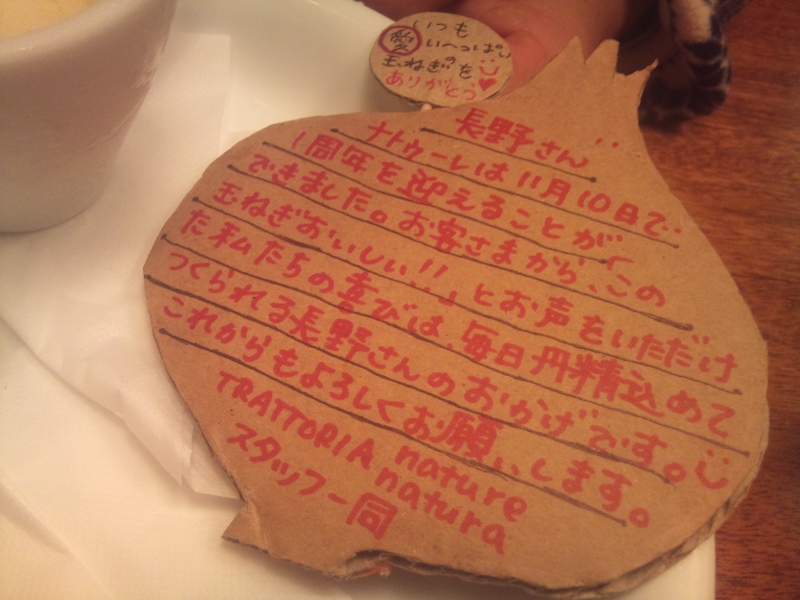 いつも
愛いへっぱい
玉ねぎのを
ありがとう
長野さん
ナトゥーレは11月10日で
1周年を迎えることが
できました。お客さまから、「この
玉ねぎおいしい!!」とお声をいただけ
た私たちの喜びは、毎日丹精込めて
つくられる長野さんのおかげです。
これからもよろしくお願いします。
TRATTORIA nature
natura
スタッフ一同